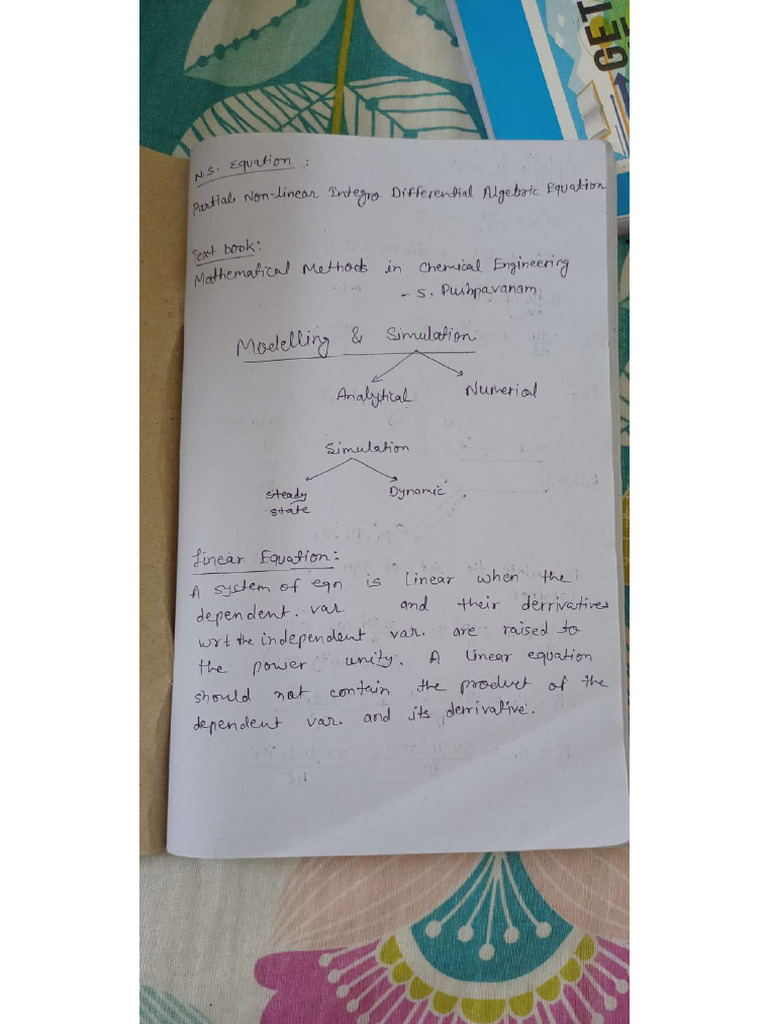 GET
N.S. Equation :
Partial Non-linear Integro Differential Algebric Equation
Text book:
Mathematical Methods in Chemical Engineering
- S. Pushpavanam
Modelling & Simulation
Analytical Numerical
Simulation
Steady state Dynamic
Linear Equation:
A system of eqn is linear when the
dependent. var. and their derrivatives
wrt the independent var. are raised to
the power unity. A linear equation
should not contain the product of the
dependent var. and its derrivative.